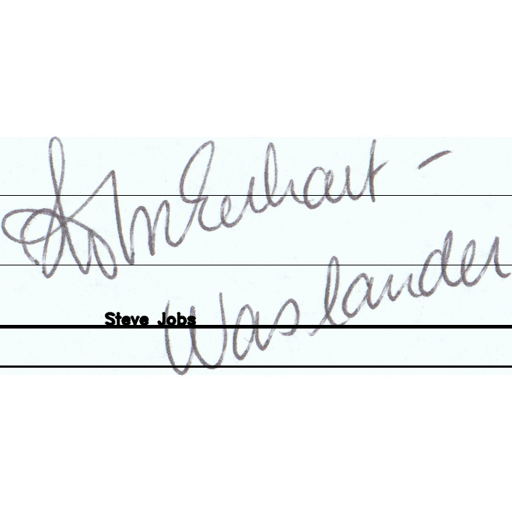 Erhart -
Waslander
Steve Jobs